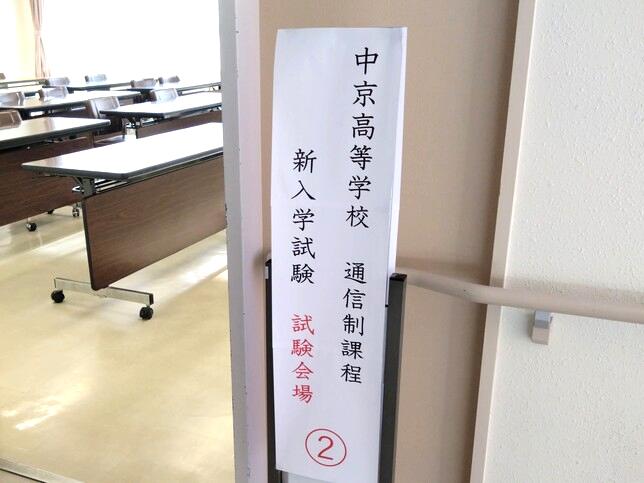 中京高等学校 通信制課程
新入学試験 試験会場
②